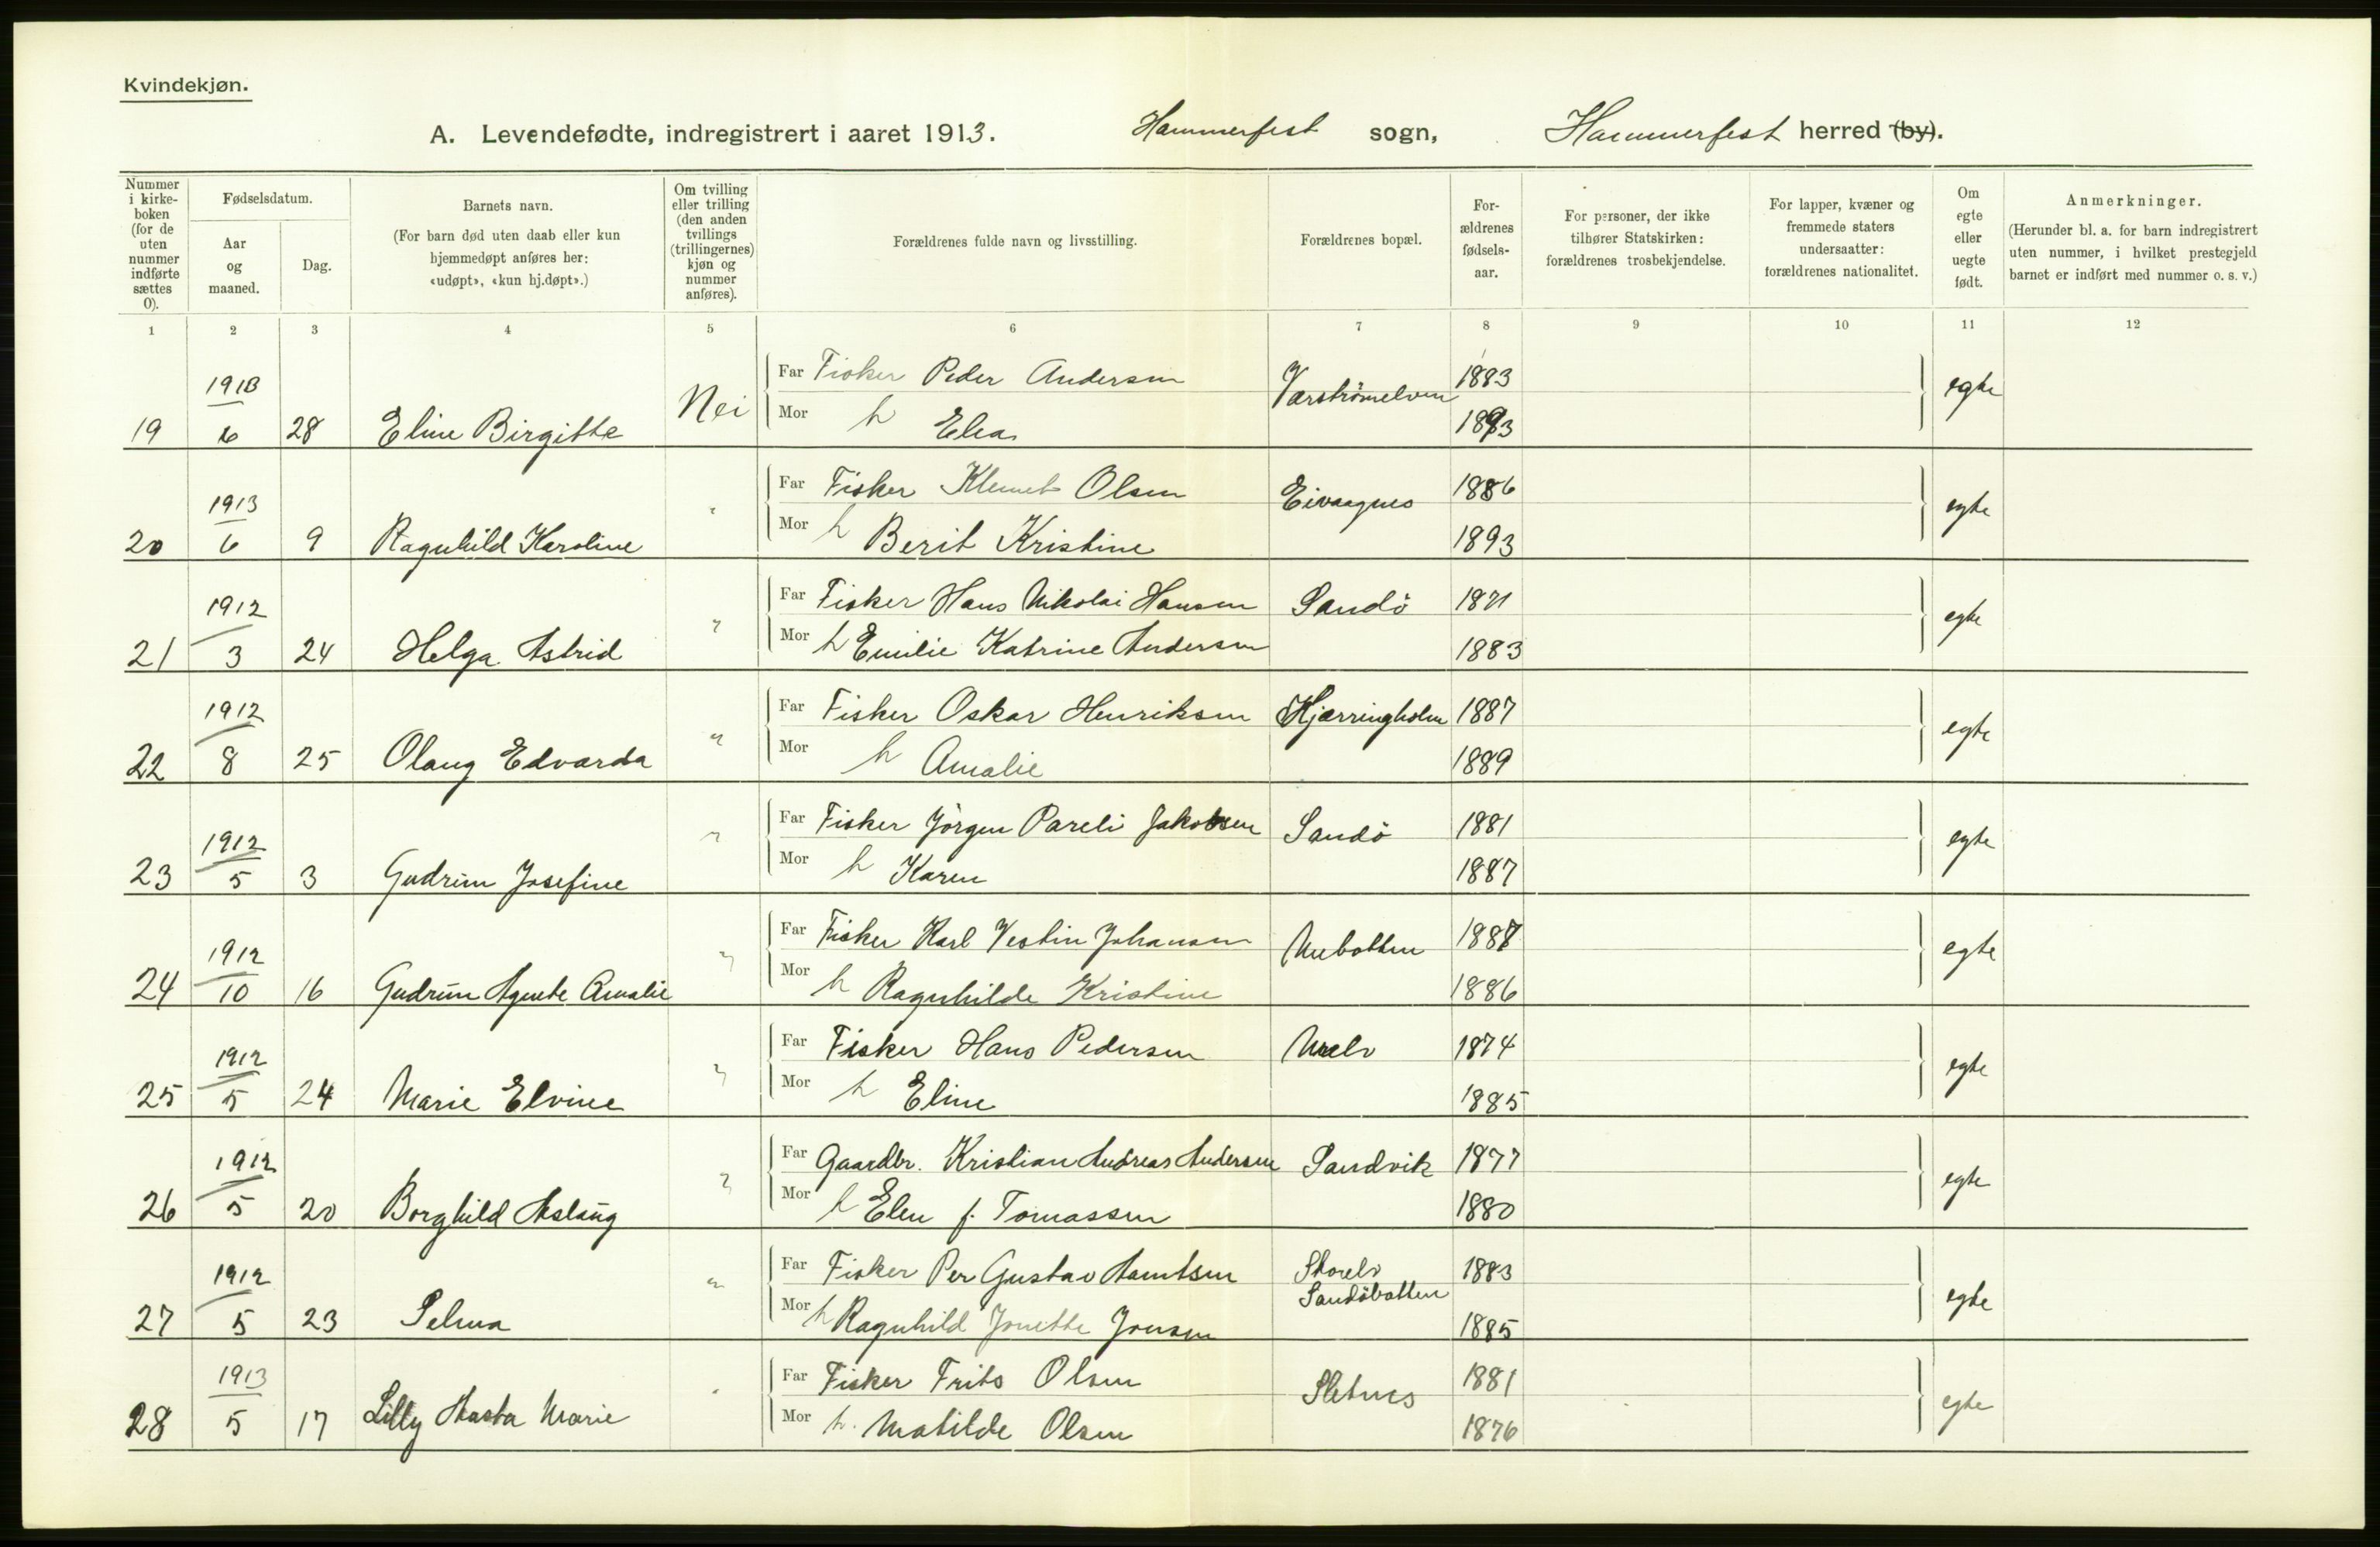 Kvindekjøn.
A. Levendefødte, indregistrert i aaret 1913. Hammerfest sogn, Hammerfest herred (by).
Nummer i kirke- boken (for de uten nummer indførte sættes 0).
Fødselsdatum.
Aar og maaned.
Dag.
Barnets navn.
(For barn død uten daab eller kun hjemmedøpt anføres her: «udøpt», «kun hj.døpt».)
Om tvilling eller trilling (den anden tvillings (trillingernes) kjøn og nummer anføres).
Forældrenes fulde navn og livsstilling.
Forældrenes bopæl.
For- ældrenes fødsels- aar.
For personer, der ikke tilhører Statskirken: forældrenes trosbekjendelse.
For lapper, kvæner og fremmede staters undersaatter: forældrenes nationalitet.
Om egte eller uegte født.
Anmerkninger.
(Herunder bl. a. for barn indregistrert uten nummer, i hvilket prestegjeld barnet er indført med nummer o. s. v.)
1 2 3 4 5 6 7 8 9 10 11 12
1913 Far Fisker Peder Andersen 1883 egte
19 6 28 Eline Birgitte Nei Mor h Elea 1883
1913 Far Fisker Klemet Olsen Eivaagnes 1886 egte
20 6 9 Ragnhild Karoline " Mor h Berit Kristine 1893
1912 Far Fisker Hans Nikolai Hansen Sandö 1871 egte
21 3 24 Helga Astrid " Mor h Emilie Katrine Andersen 1883
1912 Far Fisker Oskar Henriksen Kjærringholm 1887 egte
22 8 25 Olaug Edvarda " Mor h Amalie 1889
1912 Far Fisker Jörgen Pareli Jakobsen Sandö 1881 egte
23 5 3 Gudrun Josefine " Mor h Karen 1887
1912 Far Fisker Karl Vestin Johansen 1887 egte
24 10 16 Gudrun Agnete Amalie " Mor h Ragnhilde Kristine 1886
1912 Far Fisker Hans Pedersen 1874 egte
25 5 24 Marie Elvine " Mor h Eline 1885
1912 Far Gaardbr. Kristian Andreas Andersen Sandvik 1877 egte
26 5 20 Borghild Aslaug " Mor h Elen f. Tomassen 1880
1912 Far Fisker Per Gustav Samtsen Storelv Sandöbotten 1883 egte
27 5 23 Selma " Mor h Ragnhild Jonette Jonsen 1885
1913 Far Fisker Frits Olsen Sletnes 1881 egte
28 5 17 Lilly Aasta Marie " Mor h. Matilde Olsen 1876